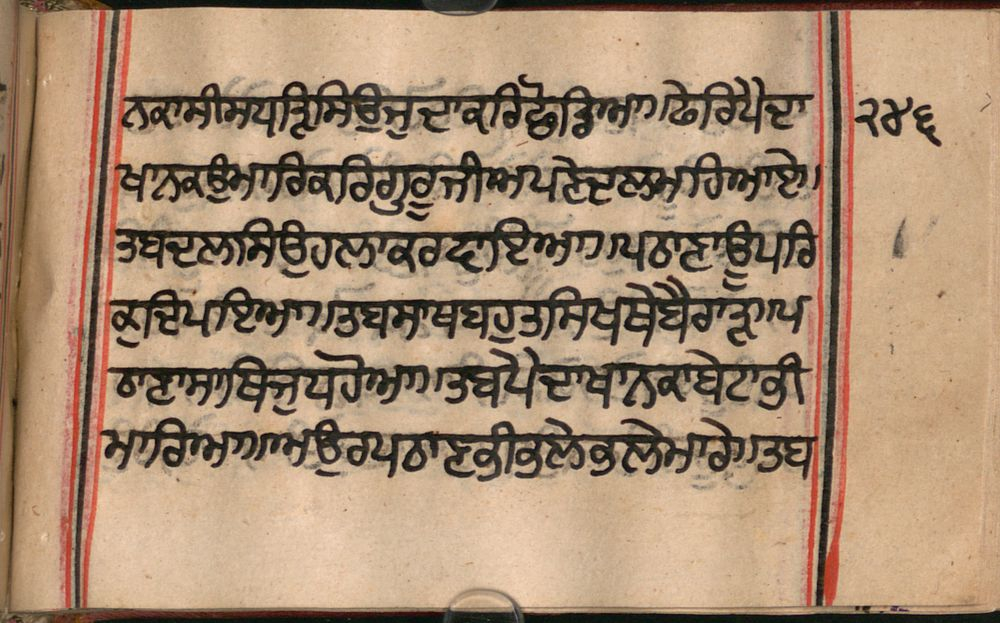 ਨਕਾਸੀਸਧੜਿਸਿਉਜੁਦਾਕਰਿਛੋੜਿਆ॥ਫੇਰਿਪੈਦਾ
੨੪੬
ਖਾਨਕਉਮਾਰਿਕਰਿਗੁਰੂਜੀਅਪਣੇਦਲਮਹਿਆਏ॥
ਤਬਦਲਸਿਉਹਲਾਕਰਵਾਇਆ॥ਪਠਾਣਾਊਪਰਿ
ਕੁਦਿਪਾਇਆ॥ਤਬਸਾਥਬਹੁਤਸਿਖਥੇਬੈਰਾੜ॥ਪ
ਠਾਣਾਸਾਥਿਜੁਧਹੋਆ॥ਤਬਪੈਦਾਖਾਨਕਾਬੇਟਾਭੀ
ਮਾਰਿਆ॥ਅਉਰਪਠਾਣਭੀਭਲੇਭਲੇਮਾਰੇ॥ਤਬ